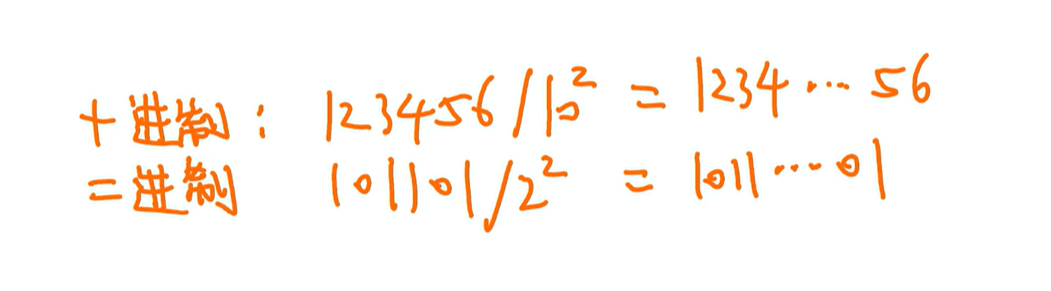 十进制: 123456/10² = 1234 ··· 56
二进制 101101/2² = 1011 ··· 01